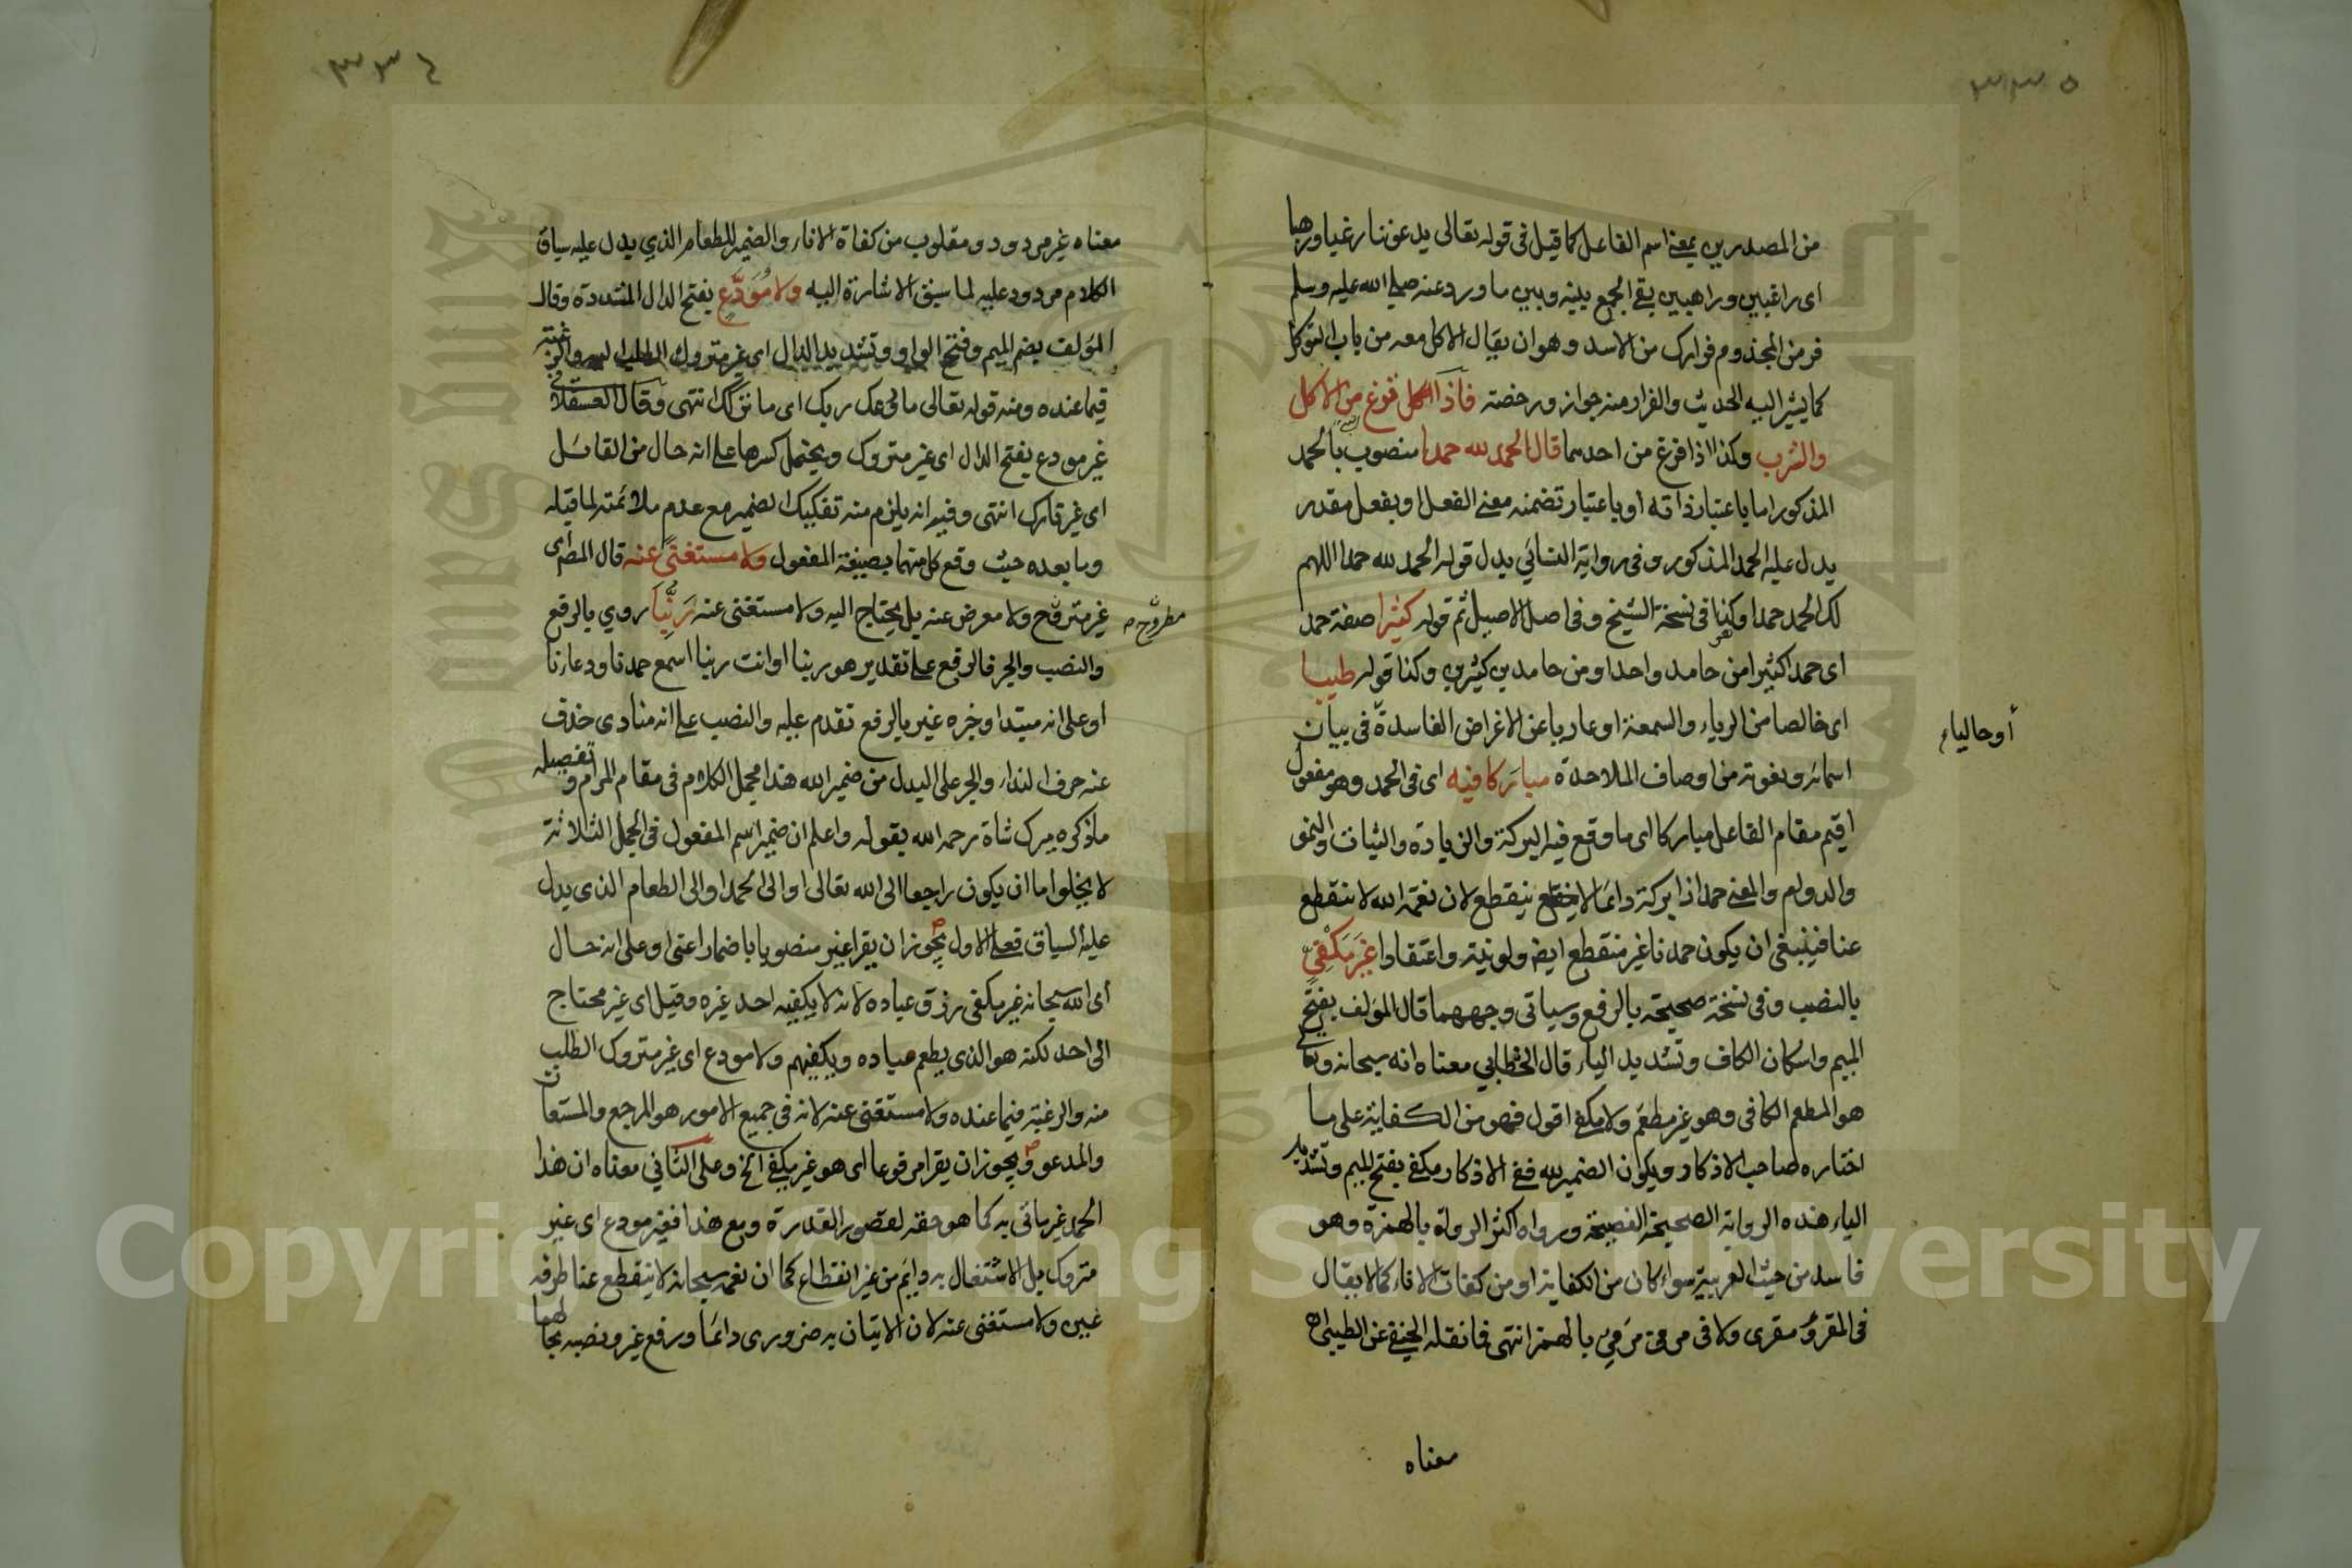 ٣٣٥
من المصدرين بمعنى اسم الفاعل كما قيل في قوله تعالى يدعوننا رغبا ورهبا
اى راغبين وراهبين بقى الجمع بينه وبين ما ورد عنه صلى الله عليه وسلم
فر من المجذوم فرارك من الاسد وهو ان يقال الاكل معه من باب التوكل
كما يشير اليه الحديث والفرار منه جواز ورخصة فاذا فرغ من الاكل
والشرب وكذا اذا فرغ من احدهما قال الحمد لله حمدا منصوب بالحمد
المذكور اما باعتبار ذاته أو باعتبار تضمنه معنى الفعل او بفعل مقدر
يدل عليه الحمد المذكور وفي رواية النسائي بدل قوله الحمد لله حمدا اللهم
لك الحمد حمدا وكذا في نسخة الشيخ وفي اصل الاصيل ثم قوله كثيرا صفة حمد
اى حمدا كثيرا من حامد واحد او من حامدين كثيرين وكذا قوله طيبا
اى خالصا من الرياء والسمعة او عاريا عن الاغراض الفاسدة في بيان
أوحالياء
اسمائه ونعوته من اوصاف الملاحدة مباركا فيه اى في الحمد وهو مفعول
اقيم مقام الفاعل مباركا اى ما وقع فيه البركة والزيادة والثبات والنمو
والدوام والمعنى حمدا ذا بركة دائما لا ينقطع لان نعمة الله لا تنقطع
عنا فينبغي ان يكون حمدنا غير منقطع ايض ولو نية واعتقادا غير مكفي
بالنصب وفي نسخة صحيحة بالرفع وسياتي وجههما قال المؤلف بفتح
الميم واسكان الكاف وتشديد الياء قال الخطابي معناه انه سبحانه وتعالى
هو المطعم الكافي وهو غير مطعم ولا مكفى اقول فهو من الكفاية على ما
اختاره صاحب الاذكار ويكون الضمير لله ففي الاذكار مكفى بفتح الميم وتشديد
الياء هذه الرواية الصحيحة الفصيحة ورواه اكثر الرواة بالهمزة وهو
فاسد من حيث العربية سواء كان من الكفاية او من كفات الاناء كما لا يقال
في المقرؤ مقرى ولا في مرمى مرمئ بالهمز انتهى فما نقله الحنفي عن الطيبي اه
معناه
٣٣٤
معناه غير مردود ومقلوب من كفاة الاناء والضمير للطعام الذي يدل عليه سياق
الكلام مردود عليه لما سبق الاشارة اليه ولا مُوَدَّعٍ بفتح الدال المشددة وقال
المؤلف بضم الميم وفتح الواو وتشديد الدال اى غير متروك الطلب اليه والرغبة
فيما عنده ومنه قوله تعالى ما ودعك ربك اى ما تركك انتهى وقال العسقلاني
غير مودع بفتح الدال اى غير متروك ويحتمل كسرها على انه حال من القائل
اى غير تارك انتهى وفيه انه يلزم منه تفكيك الضمير مع عدم ملائمته لما قبله
وما بعده حيث وقع كل منهما بصيغة المفعول ولا مستغنًى عنه قال المص اى
غير متروح ولا معرض عنه بل يحتاج اليه ولا مستغنى عنه رَبَّنَا روي بالرفع
مطروح صه
والنصب والجر فالرفع على تقدير هو ربنا او انت ربنا اسمع حمدنا ودعاءنا
او على انه مبتدا وخبره غير بالرفع تقدم عليه والنصب على انه منادى حذف
عنه حرف النداء والجر على البدل من ضمير الله هذا مجمل الكلام في مقام المرام وتفصيله
ما ذكره ميرك شاة رحمه الله بقوله واعلم ان ضمير اسم المفعول في الجمل الثلاثة
لا يخلو اما ان يكون راجعا الى الله تعالى او الى الحمد او الى الطعام الذى يدل
عليه السياق فعلى الاول يجوز ان يقرا غير منصوبا باضمار اعنى او على انه حال
اى الله سبحانه غير مكفى رزق عباده لانه لا يكفيه احد غيره وقيل اى غير محتاج
الى احد لكنه هو الذى يطعم عباده ويكفيهم ولا مودع اى غير متروك الطلب
منه والرغبة فيما عنده ولا مستغنى عنه لانه في جميع الامور هو المرجع والمستعان
والمدعو ويجوز ان يقرا مرفوعا اى هو غير مكفى الخ وعلى الثاني معناه ان هذا
الحمد غير ماتى به كما هو حقه لقصور القدرة ومع هذا فغير مودع اى غير
متروك بل الاشتغال به دائم من غير انقطاع كما ان نعمه سبحانه لا تنقطع عنا طرفة
عين ولا مستغنى عنه لان الاتيان به ضرورى دائما ورفع غير ونصبه بحالهما
Copyright © King Saud University